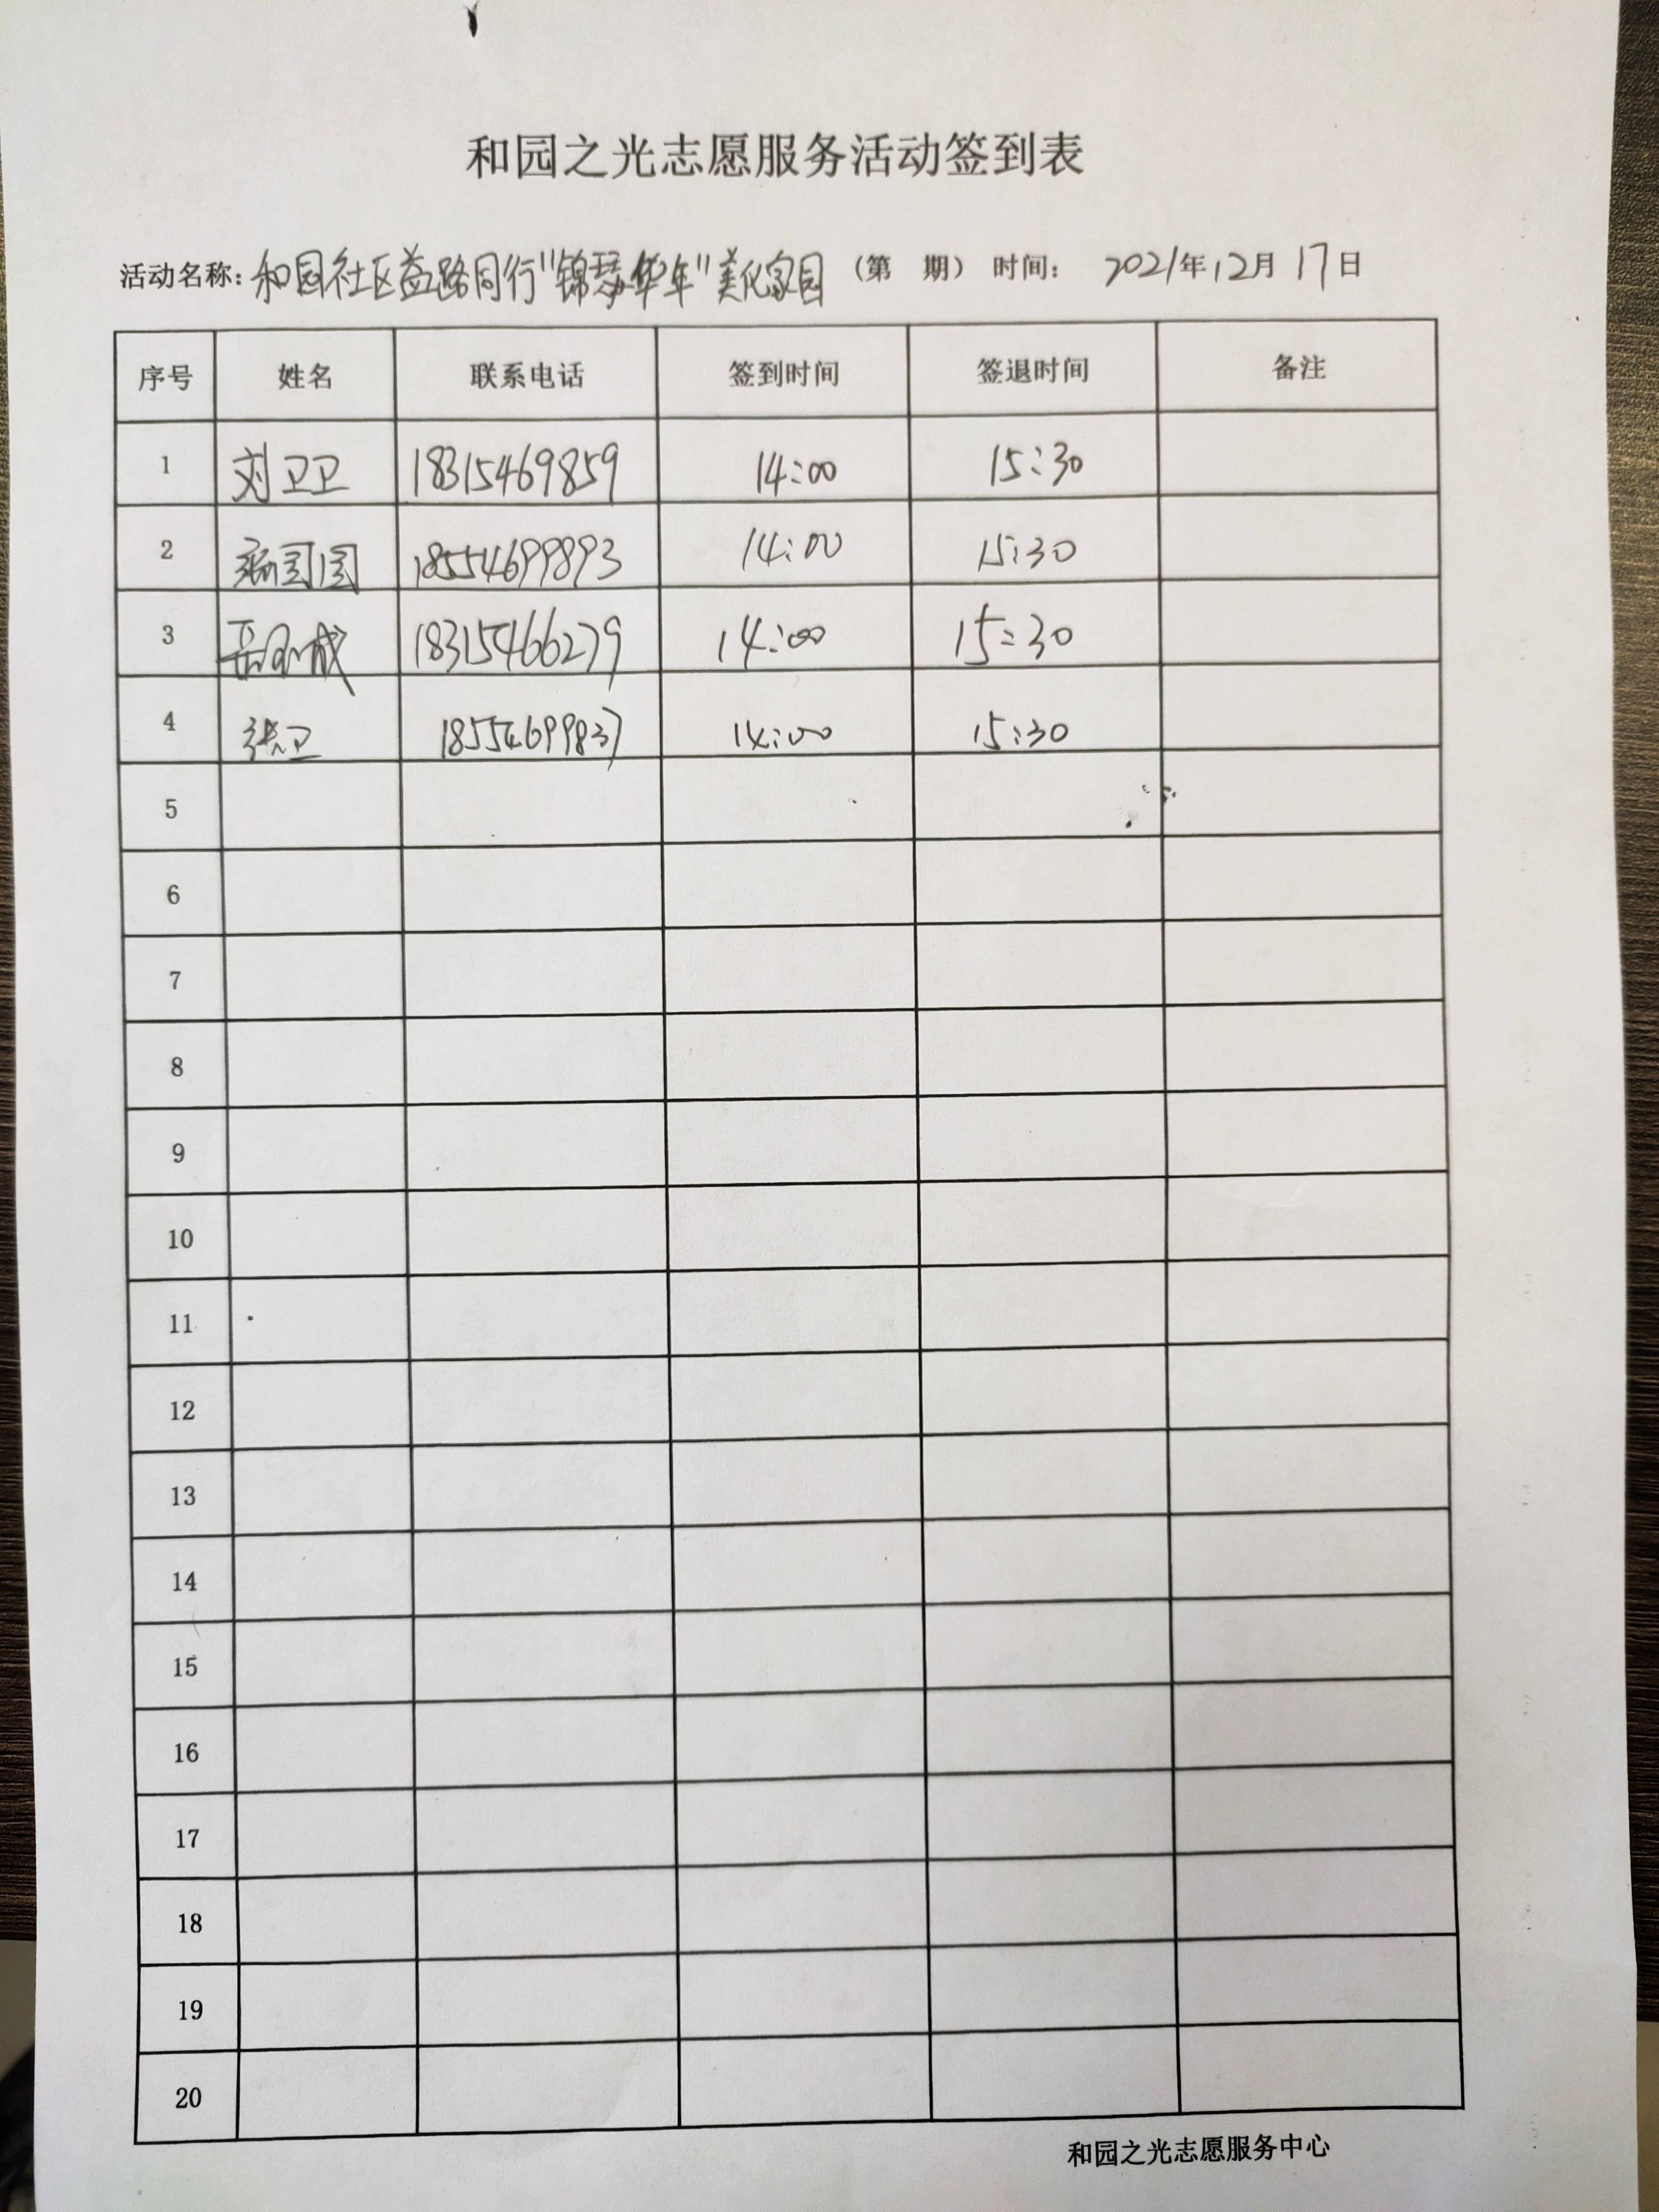 和园之光志愿服务活动签到表
活动名称：和园社区益路同行"锦瑟华年"美化家园（第 期） 时间： 2021年12月17日
序号 姓名 联系电话 签到时间 签退时间 备注
1 刘卫卫 18315469859 14:00 15:30
2 18554699893 14:00 15:30
3 18315466279 14:00 15:30
4 张卫 18554699837 14:00 15:30
5
6
7
8
9
10
11
12
13
14
15
16
17
18
19
20
和园之光志愿服务中心